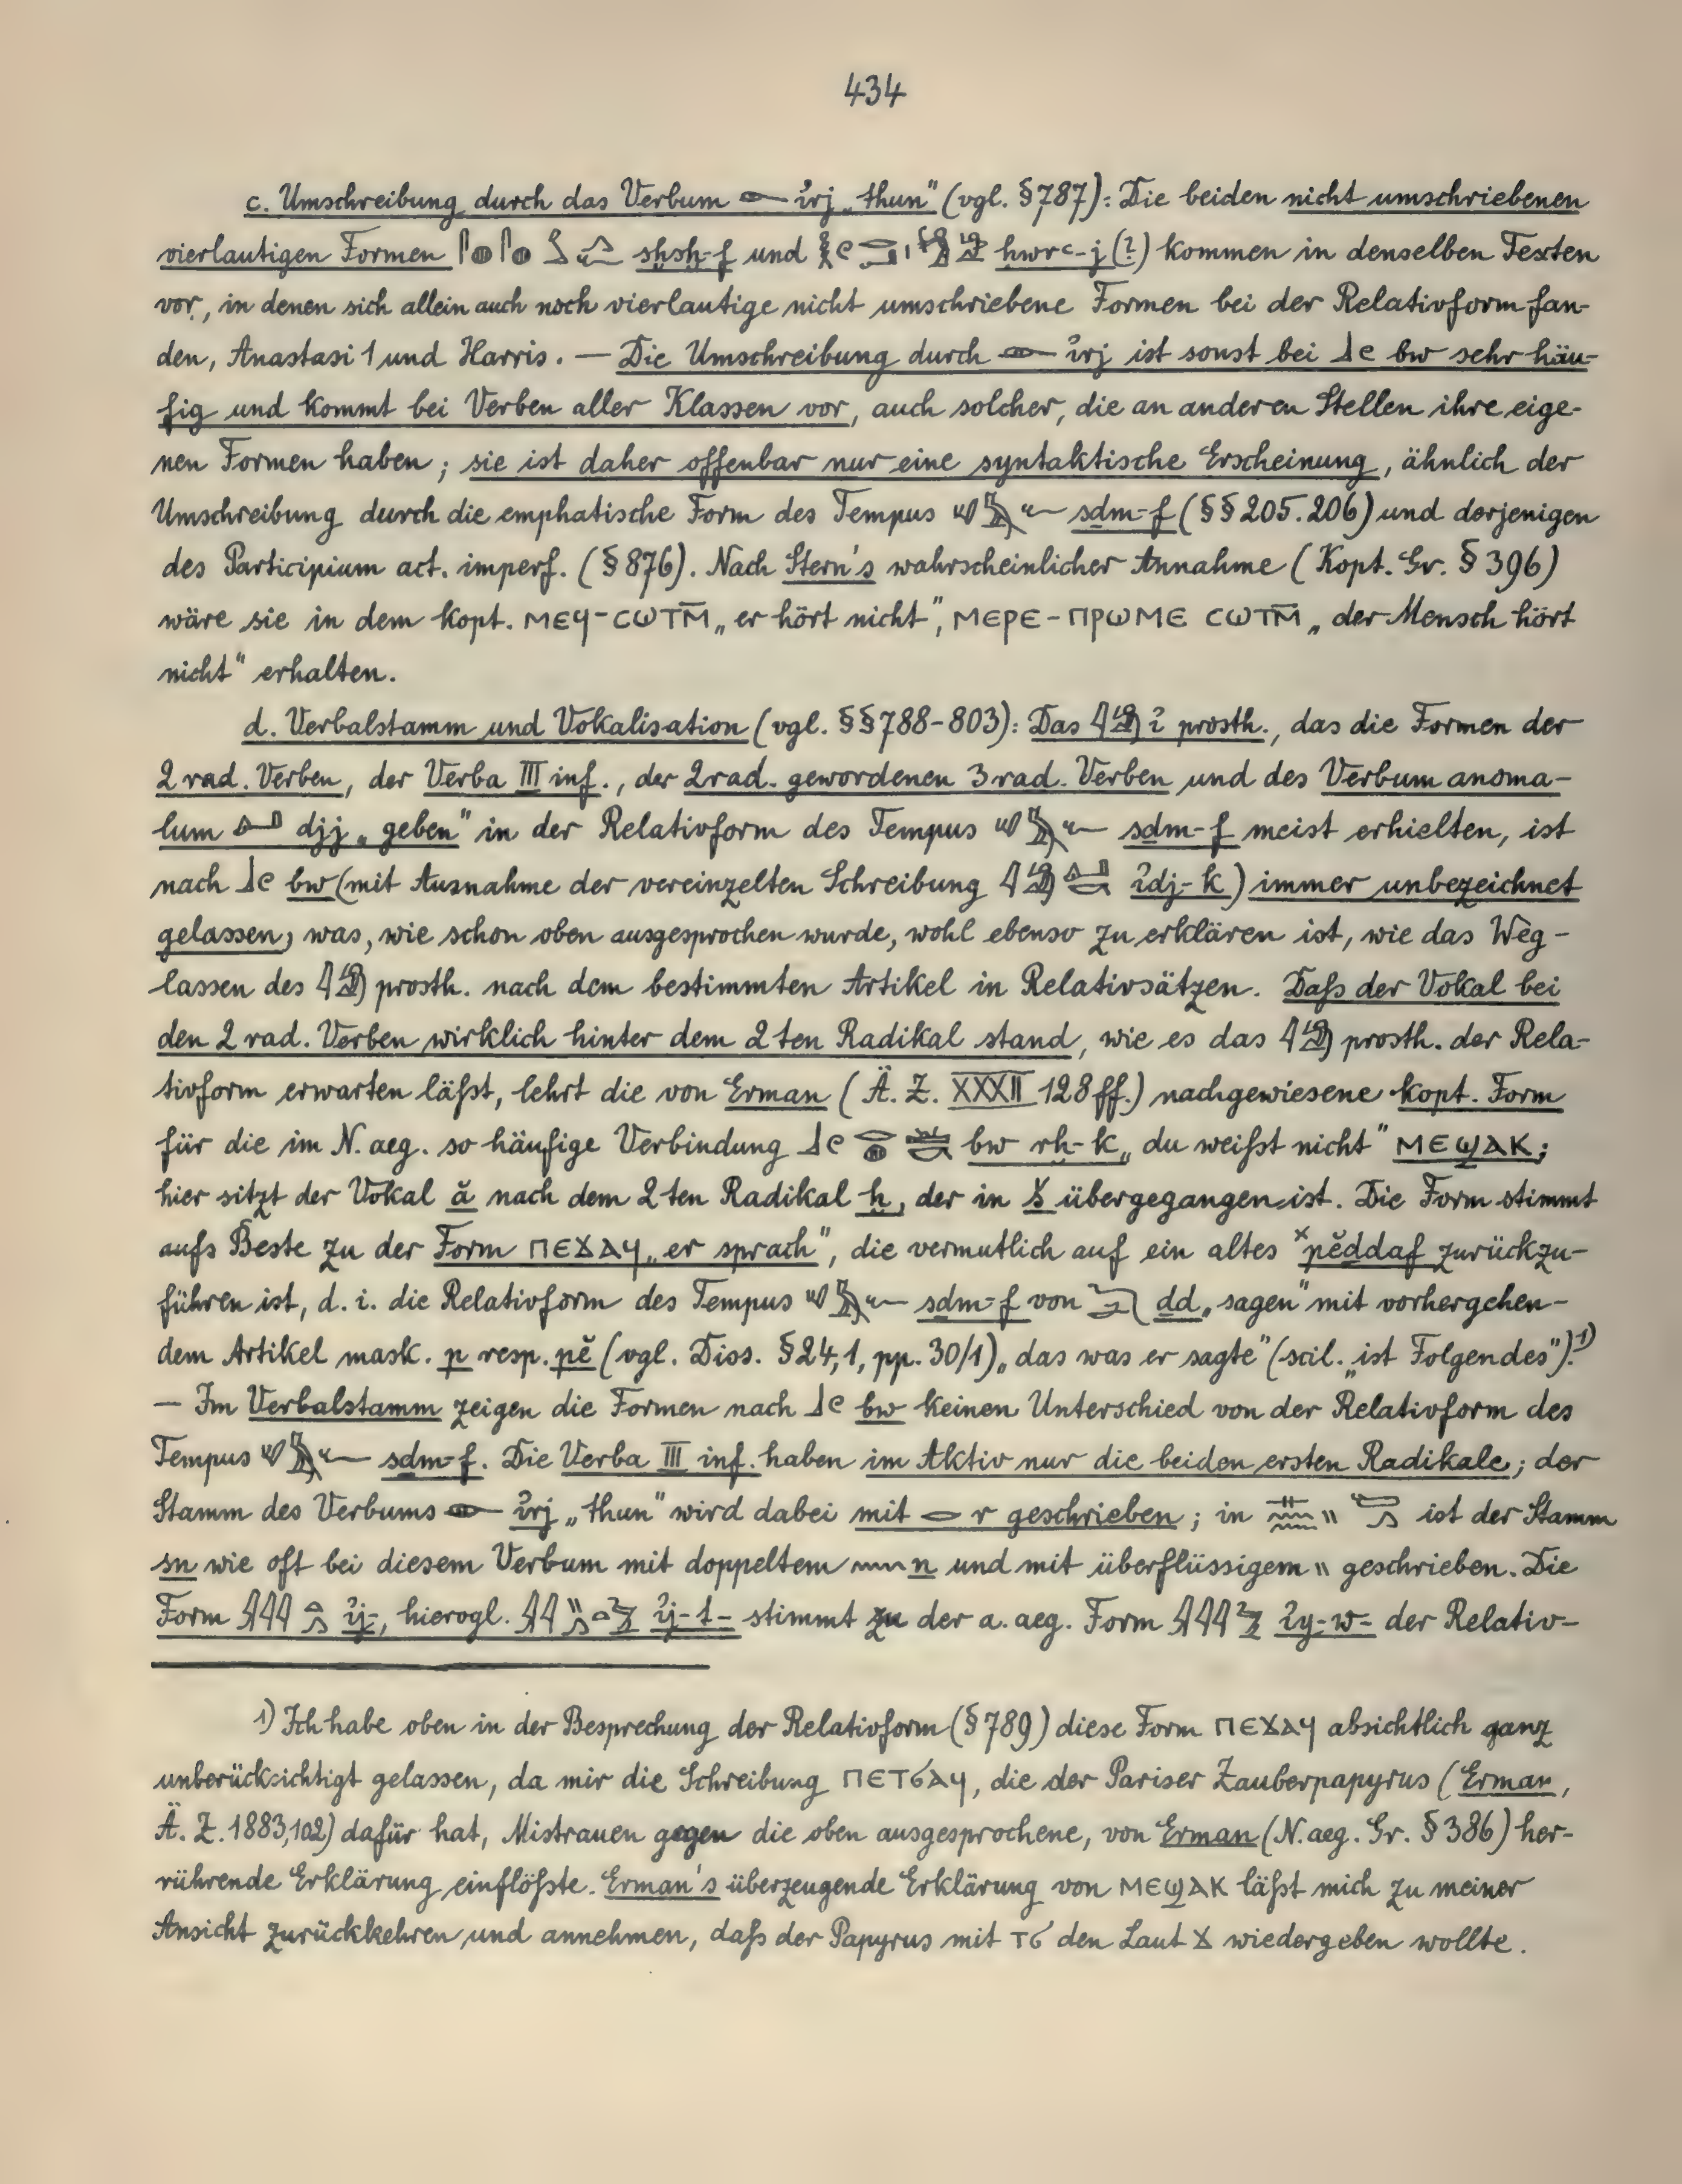 434
c. Umschreibung durch das Verbum 𓁹 ꞽrj „thun" (vgl. § 787): Die beiden nicht umschriebenen
vierlautigen Formen sḫsḫ-f und ḥwrꜥ-j (?) kommen in denselben Texten
vor, in denen sich allein auch noch vierlautige nicht umschriebene Formen bei der Relativform fan-
den, Anastasi 1 und Harris. — Die Umschreibung durch 𓁹 ꞽrj ist sonst bei 𓃀𓏲 bw sehr häu-
fig und kommt bei Verben aller Klassen vor, auch solcher, die an anderen Stellen ihre eige-
nen Formen haben; sie ist daher offenbar nur eine syntaktische Erscheinung, ähnlich der
Umschreibung durch die emphatische Form des Tempus sḏm-f (§§ 205. 206) und derjenigen
des Participium act. imperf. (§ 876). Nach Stern's wahrscheinlicher Annahme (Kopt. Gr. § 396)
wäre sie in dem kopt. ⲙⲉϥ-ⲥⲱⲧⲙ̄ „er hört nicht", ⲙⲉⲣⲉ-ⲡⲣⲱⲙⲉ ⲥⲱⲧⲙ̄ „der Mensch hört
nicht" erhalten.
d. Verbalstamm und Vokalisation (vgl. §§ 788-803): Das 𓇋𓀁 ꞽ prosth., das die Formen der
2 rad. Verben, der Verba III inf., der 2rad. gewordenen 3rad. Verben und des Verbum anoma-
lum djj „geben" in der Relativform des Tempus sḏm-f meist erhielten, ist
nach 𓃀𓏲 bw (mit Ausnahme der vereinzelten Schreibung ꞽdj-k) immer unbezeichnet
gelassen, was, wie schon oben ausgesprochen wurde, wohl ebenso zu erklären ist, wie das Weg-
lassen des 𓇋𓀁 prosth. nach dem bestimmten Artikel in Relativsätzen. Daß der Vokal bei
den 2 rad. Verben wirklich hinter dem 2ten Radikal stand, wie es das 𓇋𓀁 prosth. der Rela-
tivform erwarten läßt, lehrt die von Erman (Ä. Z. XXXII 128 ff.) nachgewiesene kopt. Form
für die im N. aeg. so häufige Verbindung bw rḫ-k „du weißt nicht" ⲙⲉϣⲁⲕ;
hier sitzt der Vokal ă nach dem 2ten Radikal ḫ, der in š übergegangen ist. Die Form stimmt
aufs Beste zu der Form ⲡⲉϫⲁϥ „er sprach", die vermutlich auf ein altes ˣpĕḏdaf zurückzu-
führen ist, d. i. die Relativform des Tempus sḏm-f von 𓆓𓂧 ḏd „sagen" mit vorhergehen-
dem Artikel mask. p resp. pĕ (vgl. Diss. § 24, 1, pp. 30/1) „das was er sagte" (scil. „ist Folgendes").¹)
— Im Verbalstamm zeigen die Formen nach 𓃀𓏲 bw keinen Unterschied von der Relativform des
Tempus sḏm-f. Die Verba III inf. haben im Aktiv nur die beiden ersten Radikale; der
Stamm des Verbums 𓁹 ꞽrj „thun" wird dabei mit 𓂋 r geschrieben; in ist der Stamm
sn wie oft bei diesem Verbum mit doppeltem 𓈖 n und mit überflüssigem 𓏭 geschrieben. Die
Form ꞽj-, hierogl. ꞽj-t- stimmt zu der a. aeg. Form ꞽy-w- der Relativ-
¹) Ich habe oben in der Besprechung der Relativform (§ 789) diese Form ⲡⲉϫⲁϥ absichtlich ganz
unberücksichtigt gelassen, da mir die Schreibung ⲡⲉⲧϭⲁϥ, die der Pariser Zauberpapyrus (Erman,
Ä. Z. 1883, 102) dafür hat, Mistrauen gegen die oben ausgesprochene, von Erman (N. aeg. Gr. § 386) her-
rührende Erklärung einflößte. Erman's überzeugende Erklärung von ⲙⲉϣⲁⲕ läßt mich zu meiner
Ansicht zurückkehren und annehmen, daß der Papyrus mit ⲧϭ den Laut ϫ wiedergeben wollte.